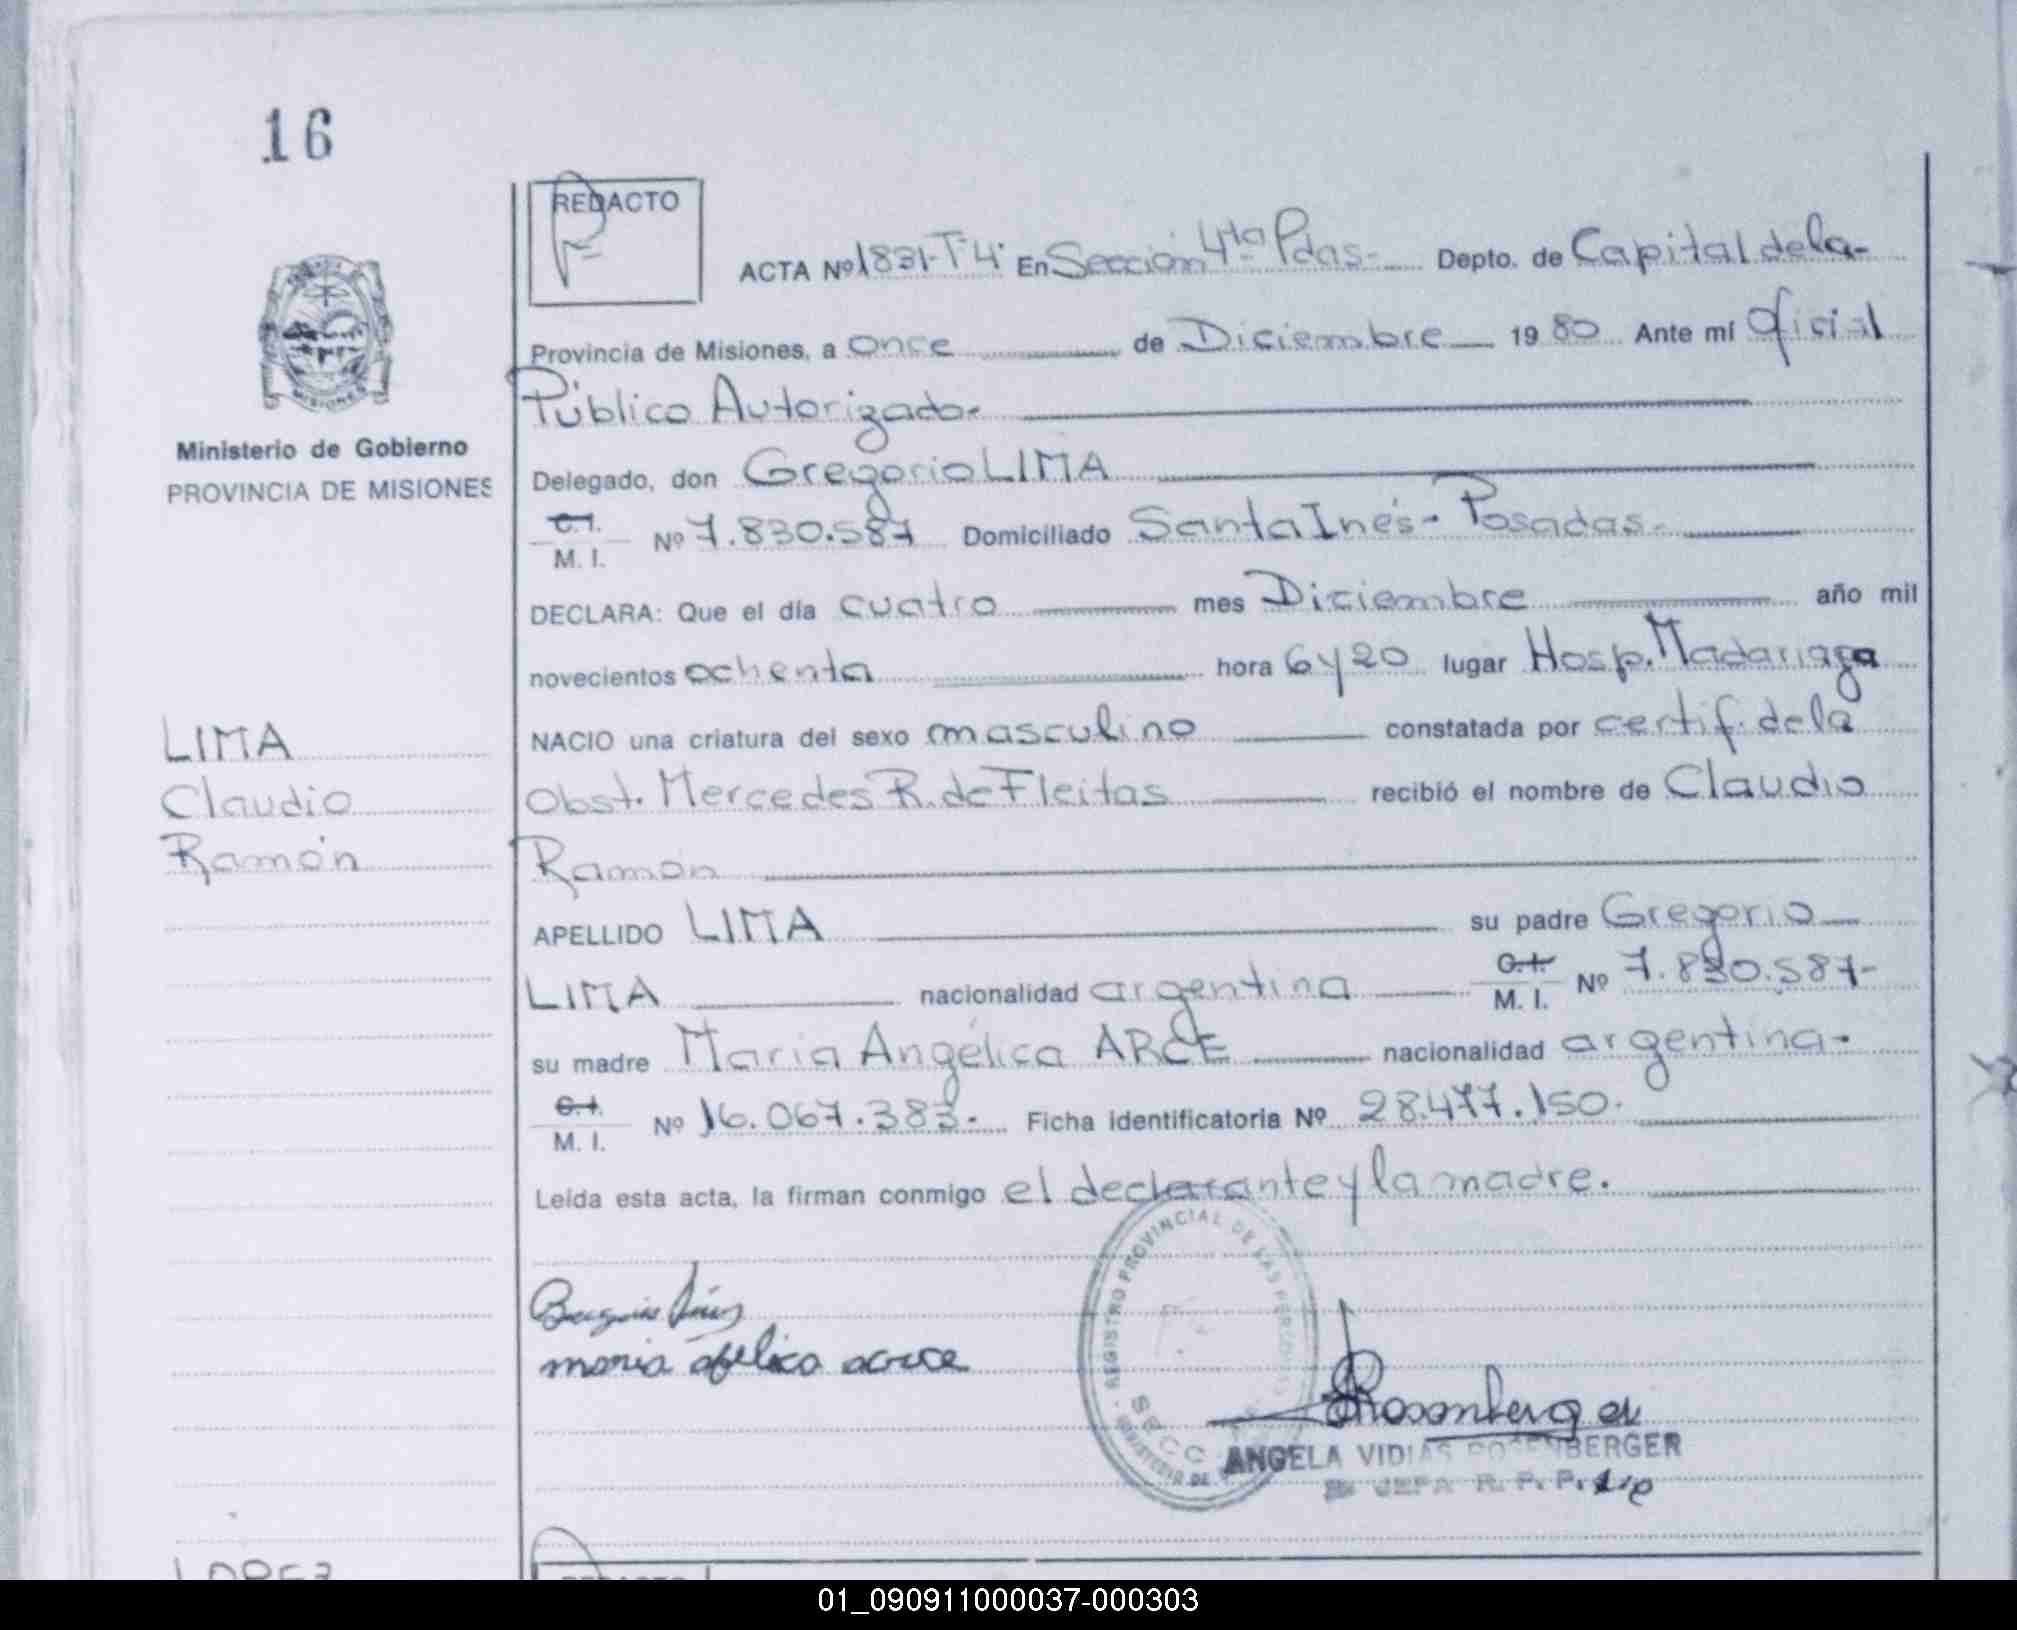 16
REDACTO
ACTA Nº 1831-T-4' En Sección 4ta Pdas- Depto. de Capital de la-
Provincia de Misiones, a once de Diciembre 1980 Ante mí Oficial
Público Autorizado-
Ministerio de Gobierno
PROVINCIA DE MISIONES
Delegado, don Gregorio LIMA
C.I.
M. I. Nº 7.830.587 Domiciliado Santa Inés- Posadas-
DECLARA: Que el día cuatro mes Diciembre año mil
novecientos ochenta hora 6 y 20 lugar Hosp. Madariaga
LIMA
Claudio
Ramón
NACIO una criatura del sexo masculino constatada por certif. de la
Obst. Mercedes R. de Fleitas recibió el nombre de Claudio
Ramón
APELLIDO LIMA su padre Gregorio
LIMA nacionalidad argentina C.I. M. I. Nº 7.830.587-
su madre Maria Angélica ARCE nacionalidad argentina-
C.I.
M. I. Nº 16.067.383- Ficha identificatoria Nº 28.477.150-
Leída esta acta, la firman conmigo el declarante y la madre.
REGISTRO PROVINCIAL DE LAS PERSONAS
SECC
maria
Rosenberger
ANGELA VIDIAS ROSENBERGER
JEFA R. P. P.
LOPEZ
REDACTO
01_090911000037-000303